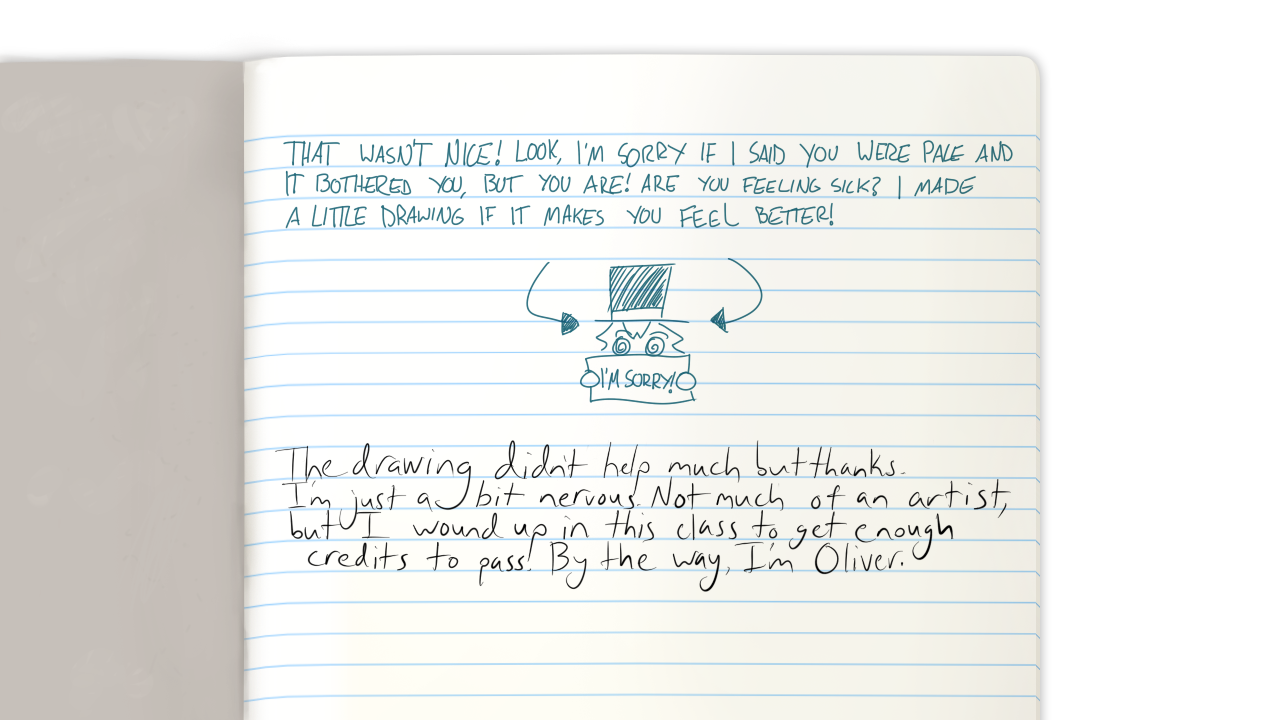 THAT WASN'T NICE! LOOK, I'M SORRY IF I SAID YOU WERE PALE AND
IT BOTHERED YOU, BUT YOU ARE! ARE YOU FEELING SICK? I MADE
A LITTLE DRAWING IF IT MAKES YOU FEEL BETTER!
I'M SORRY!
The drawing didn't help much but thanks.
I'm just a bit nervous. Not much of an artist,
but I wound up in this class to get enough
credits to pass! By the way, I'm Oliver.